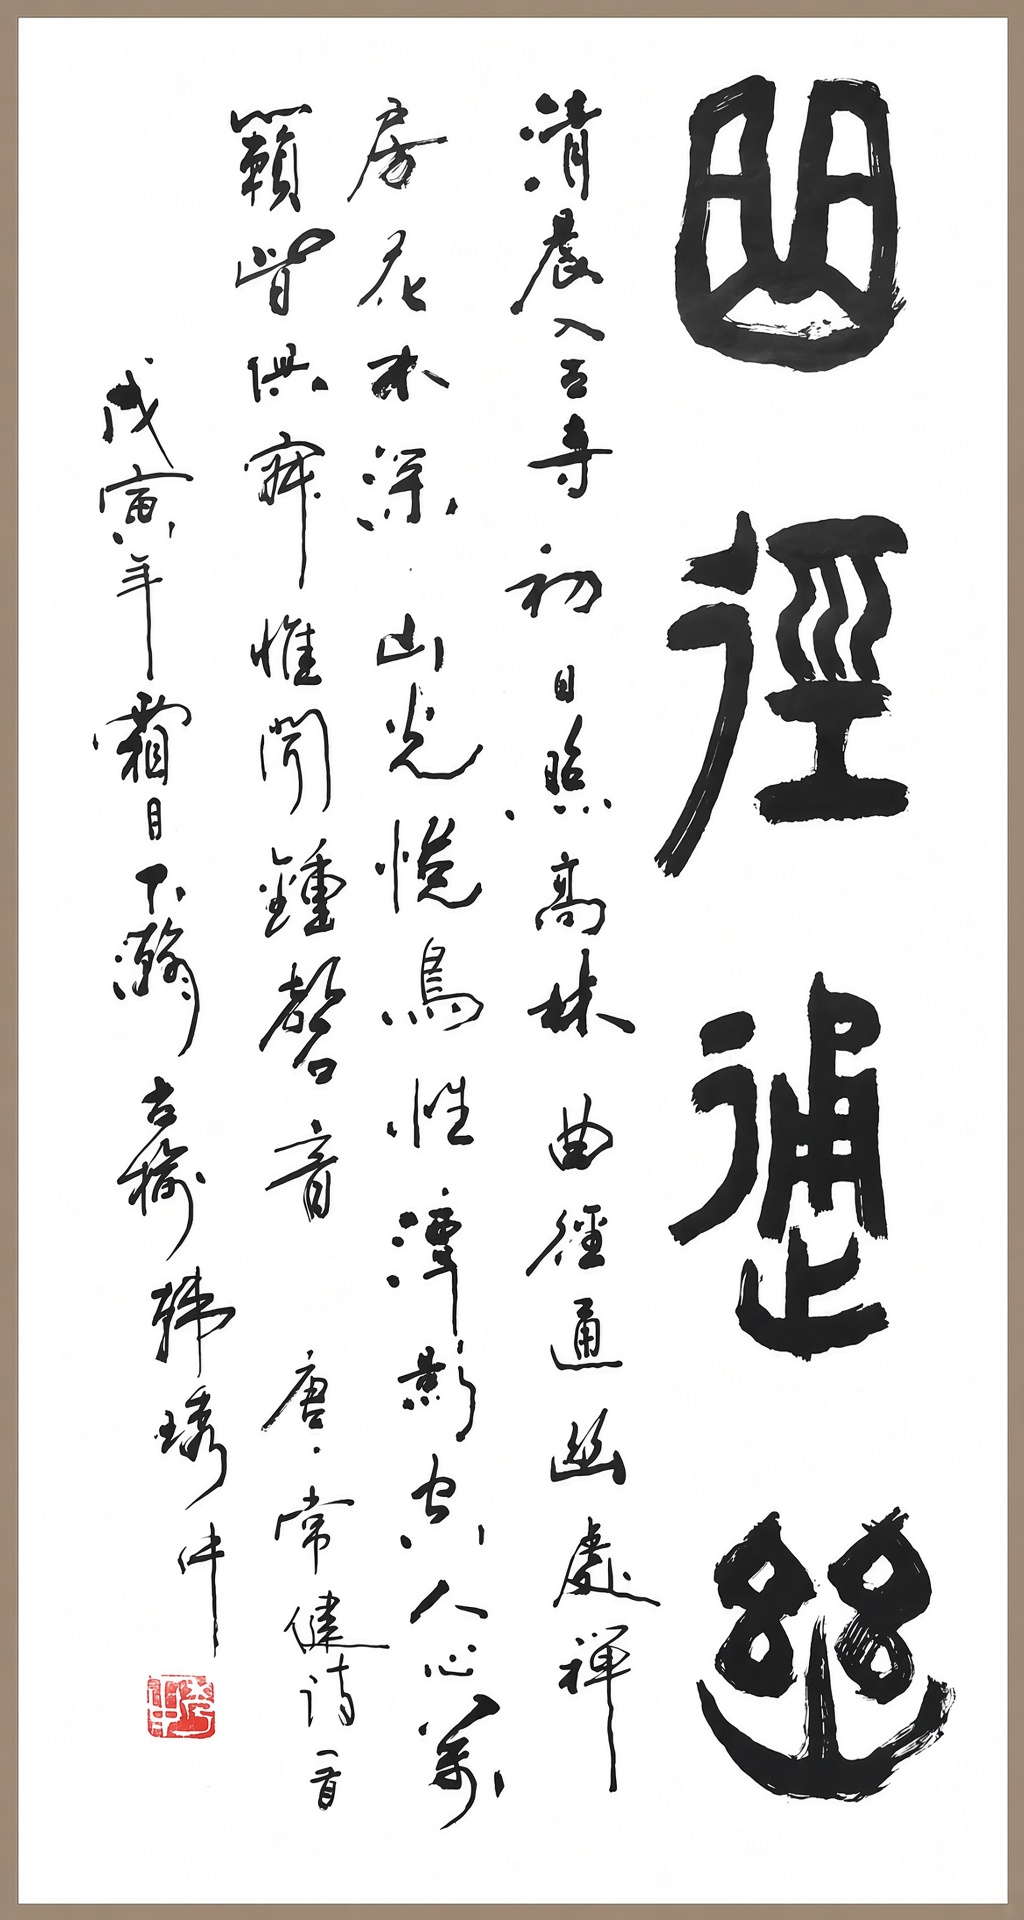 曲徑通幽
清晨入古寺初日照高林曲徑通幽處禪
房花木深山光悅鳥性潭影空人心萬
籟皆俱寂惟聞鍾磬音唐·常健詩一首
戊寅年霜月下瀚古榆韓琇